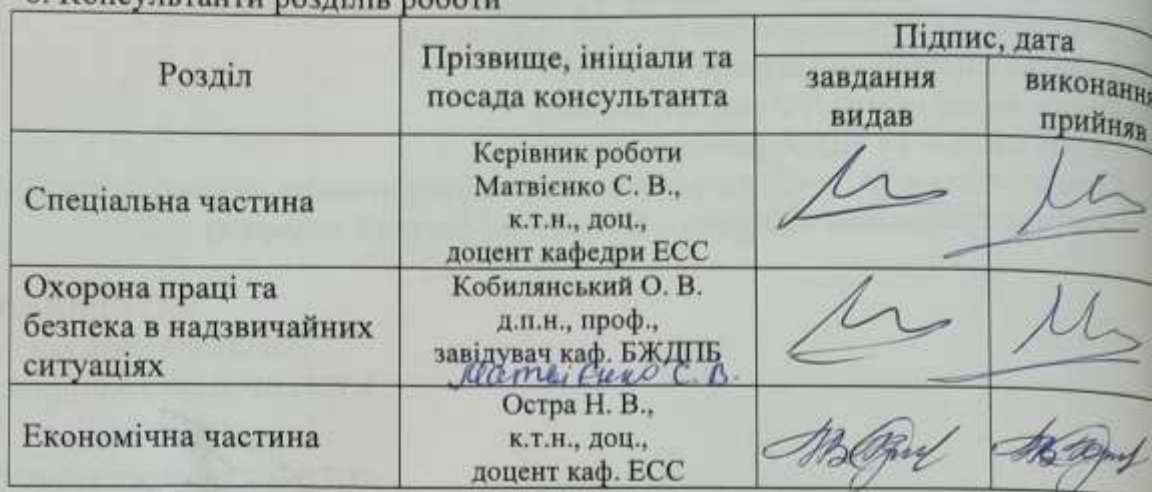 6. Консультанти розділів роботи
Розділ
Прізвище, ініціали та
посада консультанта
Підпис, дата
завдання
видав
виконання
прийняв
Спеціальна частина
Керівник роботи
Матвієнко С. В.,
к.т.н., доц.,
доцент кафедри ЕСС
Охорона праці та
безпека в надзвичайних
ситуаціях
Кобилянський О. В.
д.п.н., проф.,
завідувач каф. БЖДПБ
Матвієнко С. В.
Економічна частина
Остра Н. В.,
к.т.н., доц.,
доцент каф. ЕСС